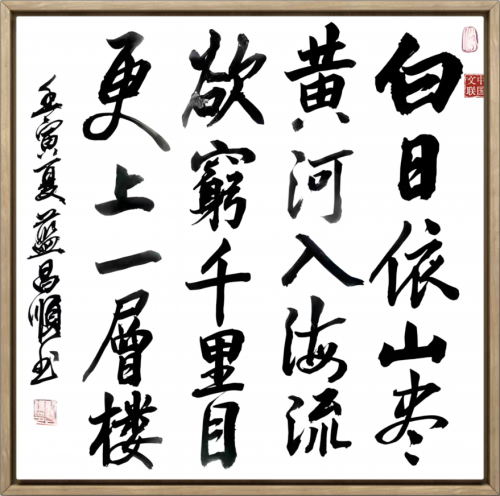 中国
文联
白日依山尽
黄河入海流
欲窮千里目
更上一層楼
壬寅夏蓝昌順书